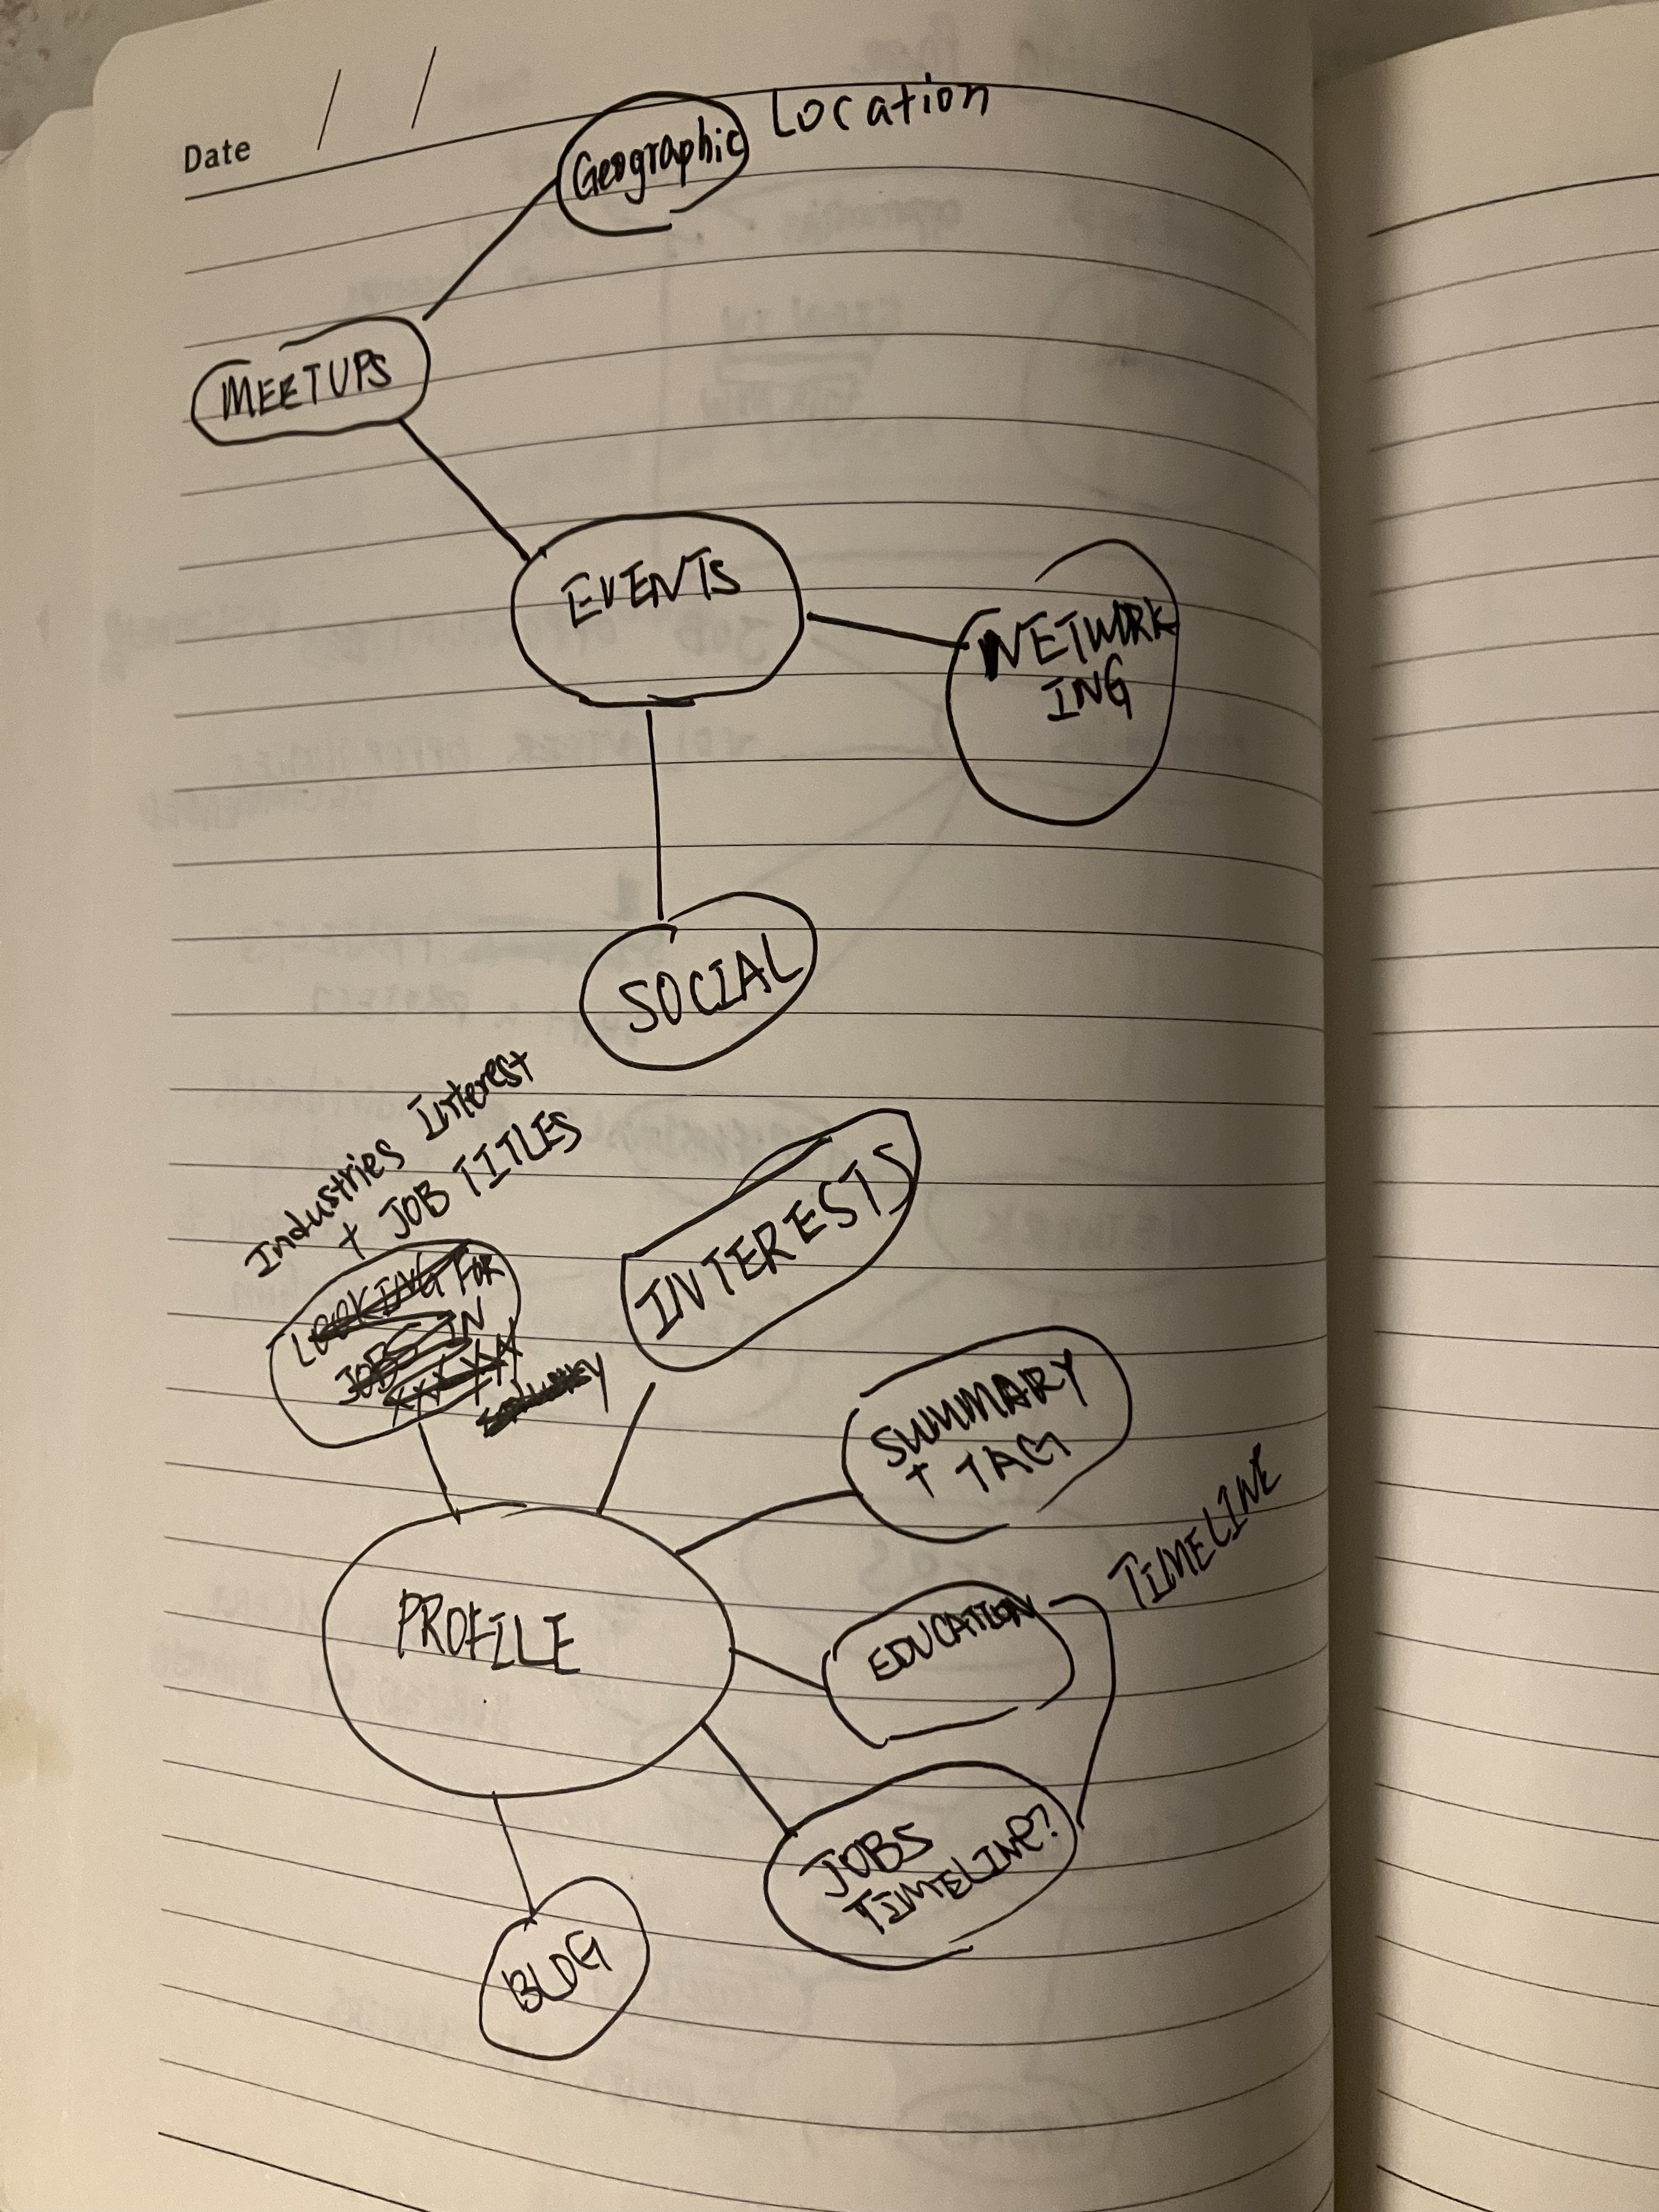 Date / /
Geographic Location
MEETUPS
EVENTS
NETWORK
ING
SOCIAL
Industries Interest
+ JOB TITLES
LOOKING FOR
JOBS IN
XXXXX
INTERESTS
SUMMARY
+ TAG
TIMELINE
EDUCATION
PROFILE
JOBS
TIMELINE?
BLOG